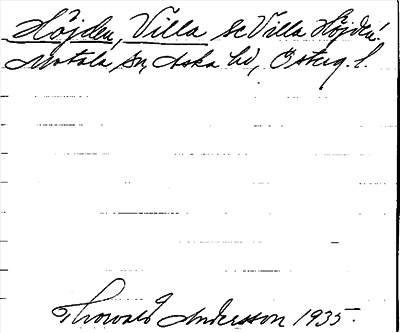 Höjden, Villa se Villa Höjden.
Motala sn, Aska hd, Österg. l.
Thorvald Andersson 1935.